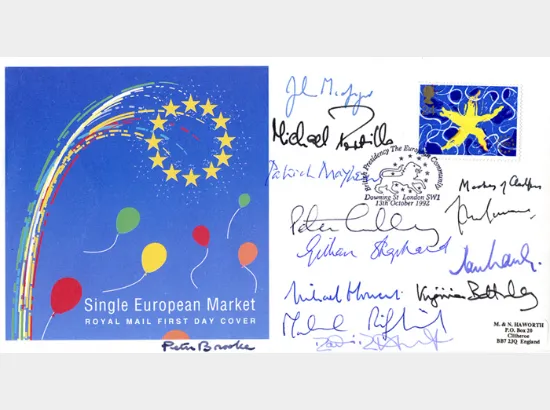 Single European Market
ROYAL MAIL FIRST DAY COVER
Peter Brooke
John
Michael Portillo
Patrick Mayhew
British Presidency The European Community
Downing St London SW1
13th October 1992
Peter
Gillian Shephard
Michael Howard
Virginia Bottomley
Malcolm Rifkind
M. & N. HAWORTH
P.O. Box 20
Clitheroe
BB7 2JQ England